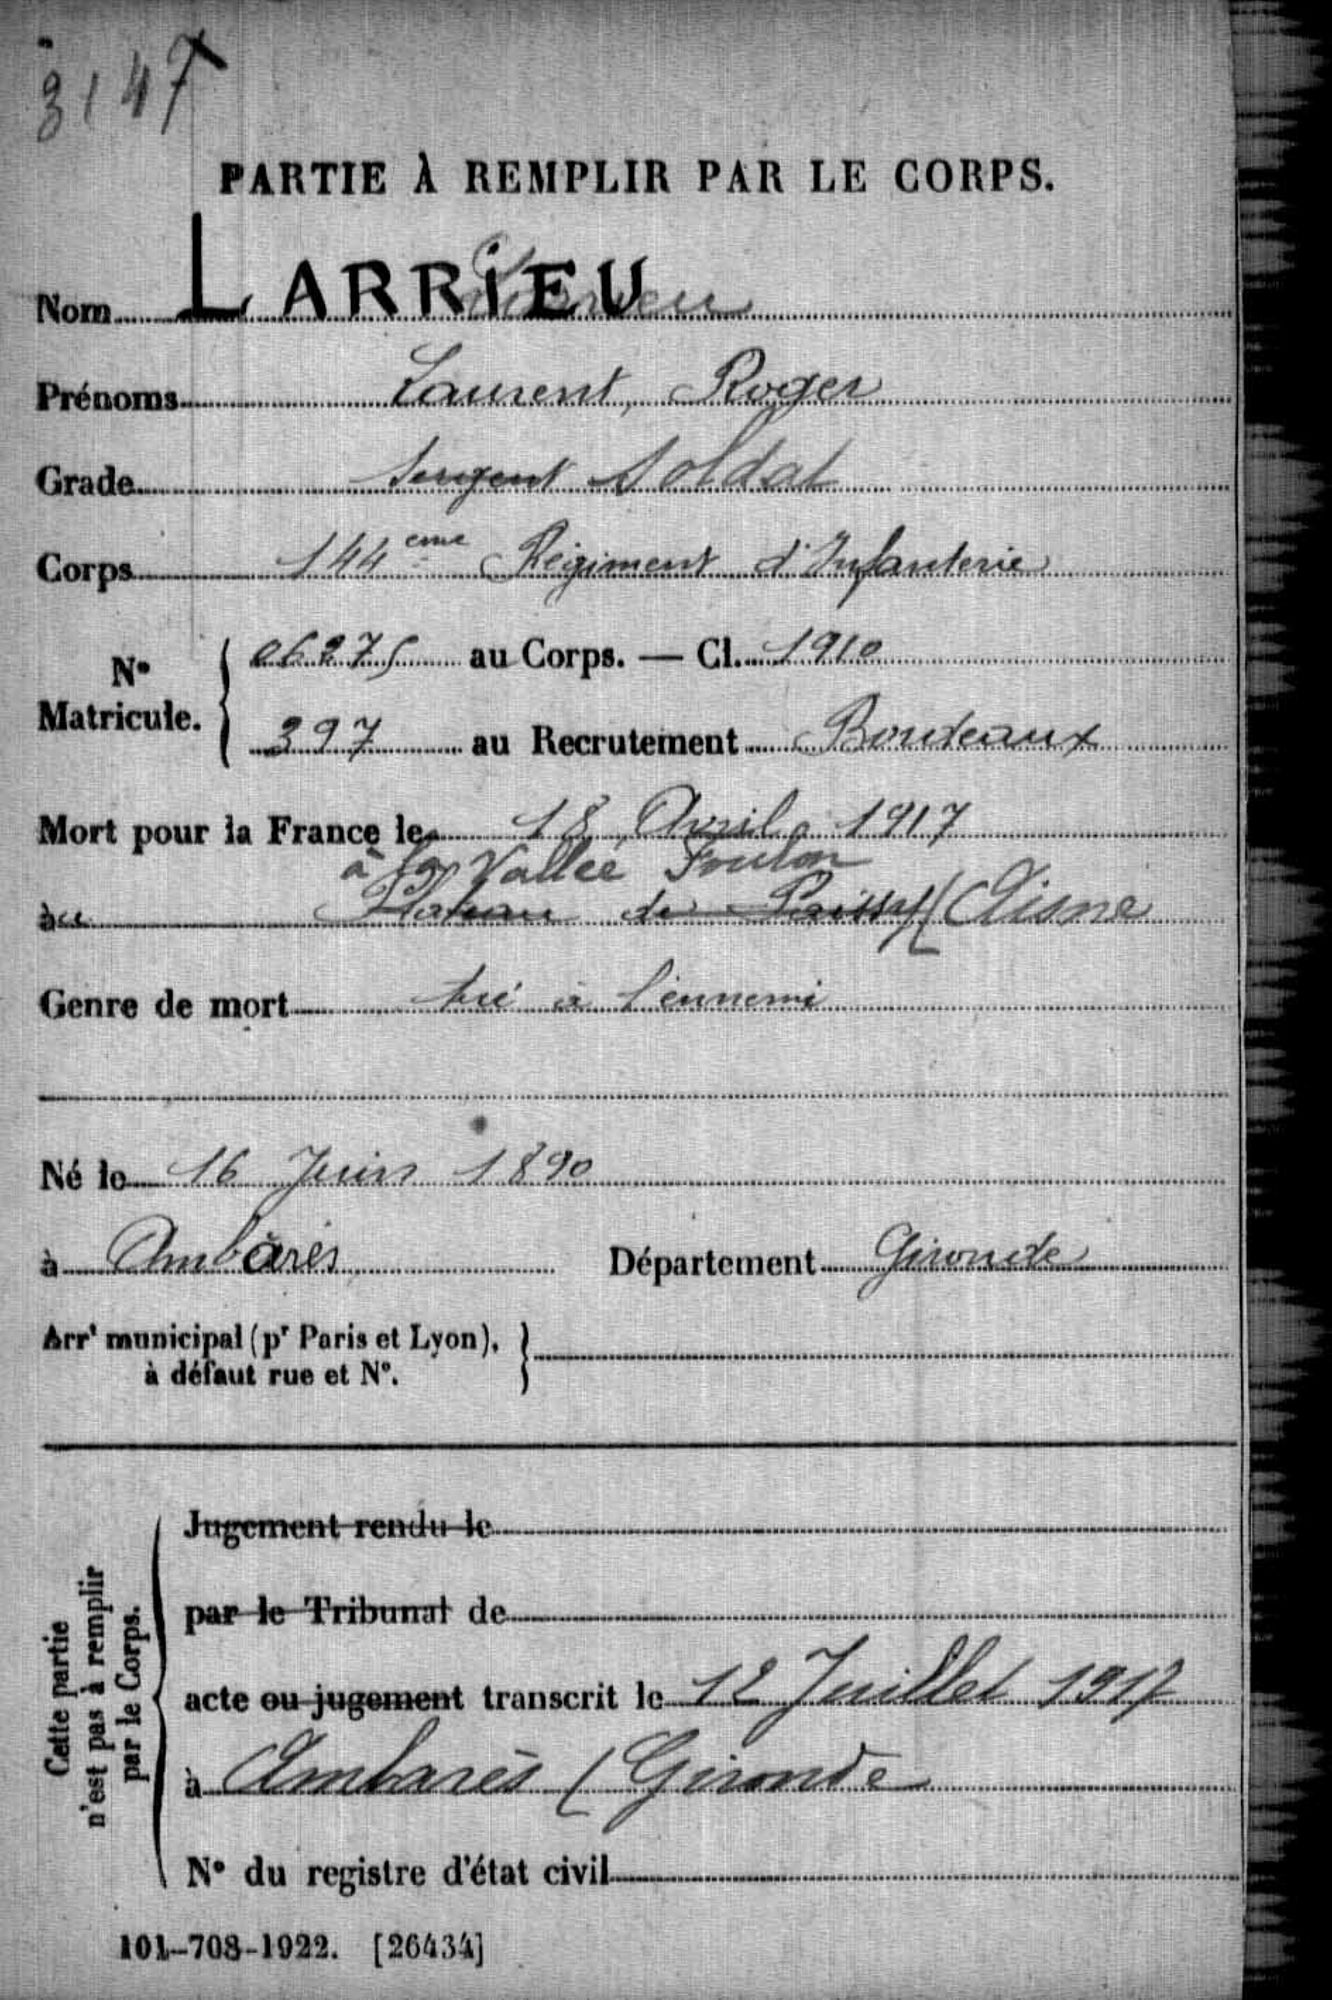 3147
PARTIE À REMPLIR PAR LE CORPS.
Nom LARRIEU Larrieu
Prénoms Laurent, Roger
Grade Sergent Soldat
Corps 144 eme Régiment d'Infanterie
N° Matricule. { 06275 au Corps. — Cl. 1910
397 au Recrutement Bordeaux
Mort pour la France le 18 Avril 1917
à la Vallée Foulon
àu Plateau de Paissy (Aisne
Genre de mort tué à l'ennemi
Né le 16 Juin 1890
à Ambarès Département Gironde
Arrt municipal (pr Paris et Lyon), }
à défaut rue et N°.
Cette partie
n'est pas à remplir
par le Corps.
Jugement rendu le
par le Tribunal de
acte ou jugement transcrit le 12 Juillet 1917
à Ambarès (Gironde
N° du registre d'état civil
101-708-1922. [26434]